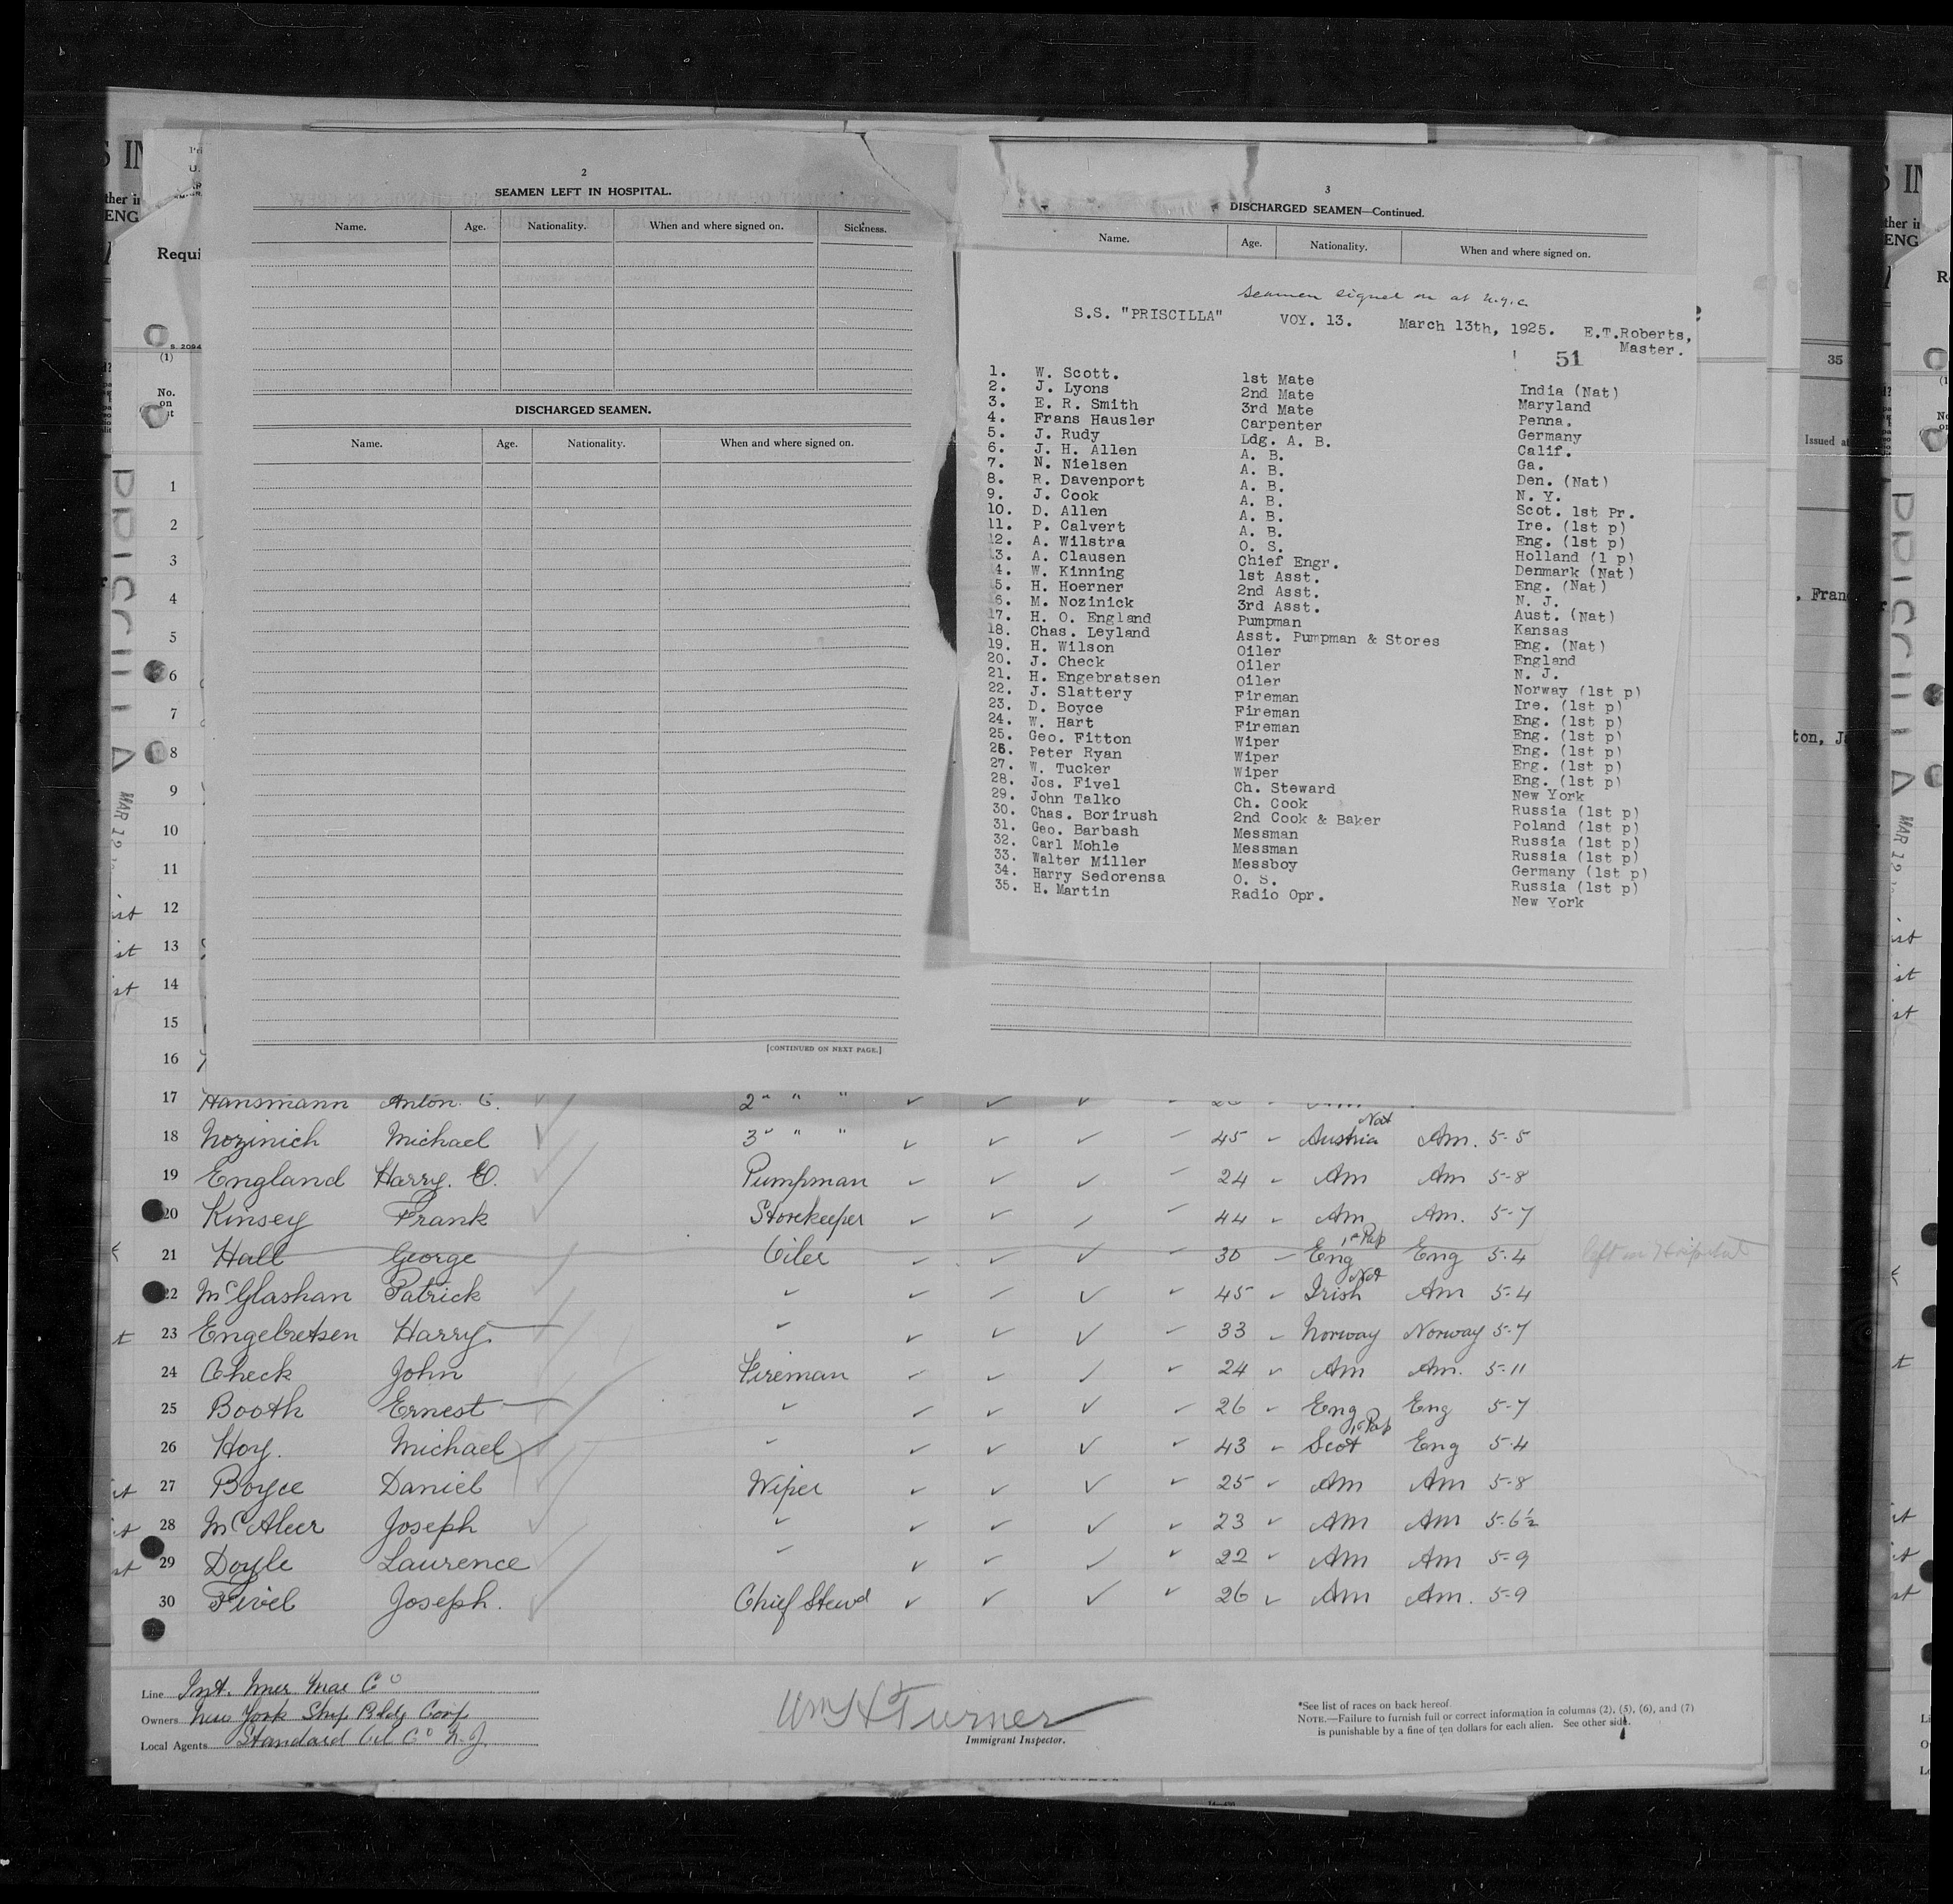 2
SEAMEN LEFT IN HOSPITAL.
Name. Age. Nationality. When and where signed on. Sickness.
DISCHARGED SEAMEN.
Name. Age. Nationality. When and where signed on.
[CONTINUED ON NEXT PAGE.]
3
DISCHARGED SEAMEN—Continued.
Name. Age. Nationality. When and where signed on.
Seamen signed on at N.Y.C.
S.S. "PRISCILLA" VOY. 13. March 13th, 1925. E.T.Roberts,
Master.
51
1. W. Scott. 1st Mate India (Nat)
2. J. Lyons 2nd Mate Maryland
3. E. R. Smith 3rd Mate Penna.
4. Frans Hausler Carpenter Germany
5. J. Rudy Ldg. A. B. Calif.
6. J. H. Allen A. B. Ga.
7. N. Nielsen A. B. Den. (Nat)
8. R. Davenport A. B. N. Y.
9. J. Cook A. B. Scot. 1st Pr.
10. D. Allen A. B. Ire. (1st p)
11. P. Calvert A. B. Eng. (1st p)
12. A. Wilstra O. S. Holland (1 p)
3. A. Clausen Chief Engr. Denmark (Nat)
4. W. Kinning 1st Asst. Eng. (Nat)
5. H. Hoerner 2nd Asst. N. J.
6. M. Nozinick 3rd Asst. Aust. (Nat)
17. H. O. England Pumpman Kansas
18. Chas. Leyland Asst. Pumpman & Stores Eng. (Nat)
19. H. Wilson Oiler England
20. J. Check Oiler N. J.
21. H. Engebratsen Oiler Norway (1st p)
22. J. Slattery Fireman Ire. (1st p)
23. D. Boyce Fireman Eng. (1st p)
24. W. Hart Fireman Eng. (1st p)
25. Geo. Fitton Wiper Eng. (1st p)
26. Peter Ryan Wiper Eng. (1st p)
27. W. Tucker Wiper Eng. (1st p)
28. Jos. Fivel Ch. Steward New York
29. John Talko Ch. Cook Russia (1st p)
30. Chas. Borirush 2nd Cook & Baker Poland (1st p)
31. Geo. Barbash Messman Russia (1st p)
32. Carl Mohle Messman Russia (1st p)
33. Walter Miller Messboy Germany (1st p)
34. Harry Sedorensa O. S. Russia (1st p)
35. H. Martin Radio Opr. New York
Requi
(1)
No.
on
1
2
3
4
5
6
7
8
9
10
11
12
13
14
15
16
17 Hansmann Anton. C. 2" " "
18 Nozinich Michael 3" " " 45 Austria Nat Am. 5-5
19 England Harry. O. Pumpman 24 Am Am 5-8
20 Kinsey Frank Storekeeper 44 Am Am. 5-7
21 Hall George Oiler 30 Eng 1st Pap Eng 5-4 left in Hospital
22 McGlashan Patrick " 45 Irish Nat Am 5-4
23 Engebretsen Harry. " 33 Norway Norway 5-7
24 Check John Fireman 24 Am Am. 5-11
25 Booth Ernest " 26 Eng Eng 5-7
26 Hoy. Michael " 43 Scot 1st Pap Eng 5-4
27 Boyce Daniel Wiper 25 Am Am 5-8
28 McAleer Joseph " 23 Am Am 5-6½
29 Doyle Laurence " 22 Am Am 5-9
30 Fivel Joseph. Chief Stewd 26 Am Am. 5-9
Line Int. Mer Mar Co
Owners New York Ship Bldg Corp
Local Agents Standard Oil Co N.J.
Wm H Turner
Immigrant Inspector.
*See list of races on back hereof.
NOTE.—Failure to furnish full or correct information in columns (2), (5), (6), and (7)
is punishable by a fine of ten dollars for each alien. See other side.
PRISCILLA
35
Issued at
, Fran
ton, J